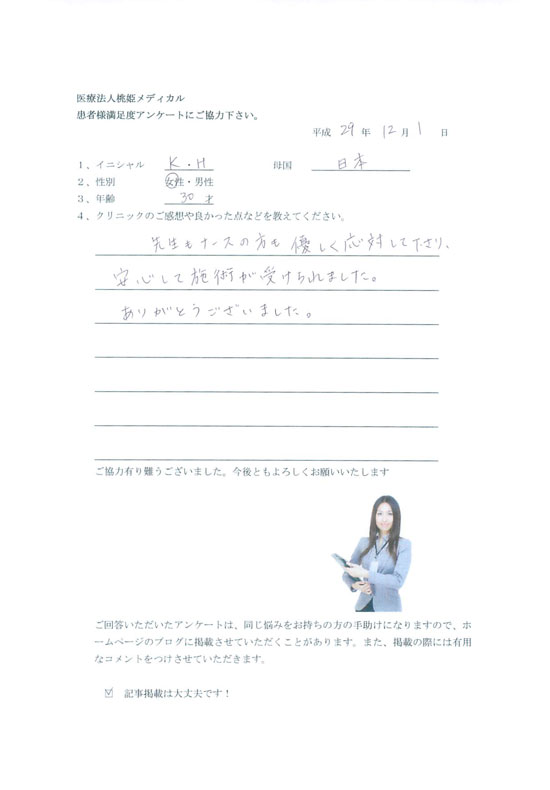 医療法人桃姫メディカル
患者様満足度アンケートにご協力下さい。
平成 29 年 12 月 1 日
1、イニシャル K・H 母国 日本
2、性別 女性・男性
3、年齢 30 才
4、クリニックのご感想や良かった点などを教えてください。
先生もナースの方も優しく応対して下さり、
安心して施術が受けられました。
ありがとうございました。
ご協力有り難うございました。今後ともよろしくお願いいたします
ご回答いただいたアンケートは、同じ悩みをお持ちの方の手助けになりますので、ホ
ームページのブログに掲載させていただくことがあります。また、掲載の際には有用
なコメントをつけさせていただきます。
☑ 記事掲載は大丈夫です！